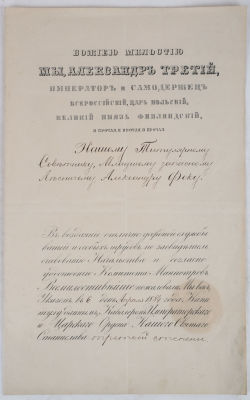 БОЖІЕЮ МИЛОСТІЮ
МЫ, АЛЕКСАНДРЪ ТРЕТІЙ,
ИМПЕРАТОРЪ и САМОДЕРЖЕЦЪ
ВСЕРОССІЙСКІЙ, ЦАРЬ ПОЛЬСКІЙ,
ВЕЛИКІЙ КНЯЗЬ ФИНЛЯНДСКІЙ,
И ПРОЧАЯ И ПРОЧАЯ И ПРОЧАЯ
Нашему Титулярному
Совѣтнику, Младшему запасному
Лѣсничему Александру
Въ воздаяніе отлично усердной службы
вашей и особыхъ трудовъ, по засвидѣтель-
ствованію Начальства и согласно
удостоенію Комитета Министровъ
Всемилостивѣйше пожаловали Мы васъ
Указомъ въ 6 день Апрѣля 1889 года, Капи-
тулу даннымъ, Кавалеромъ Императорскаго
и Царскаго Ордена Нашего Святаго
Станислава третьей степени